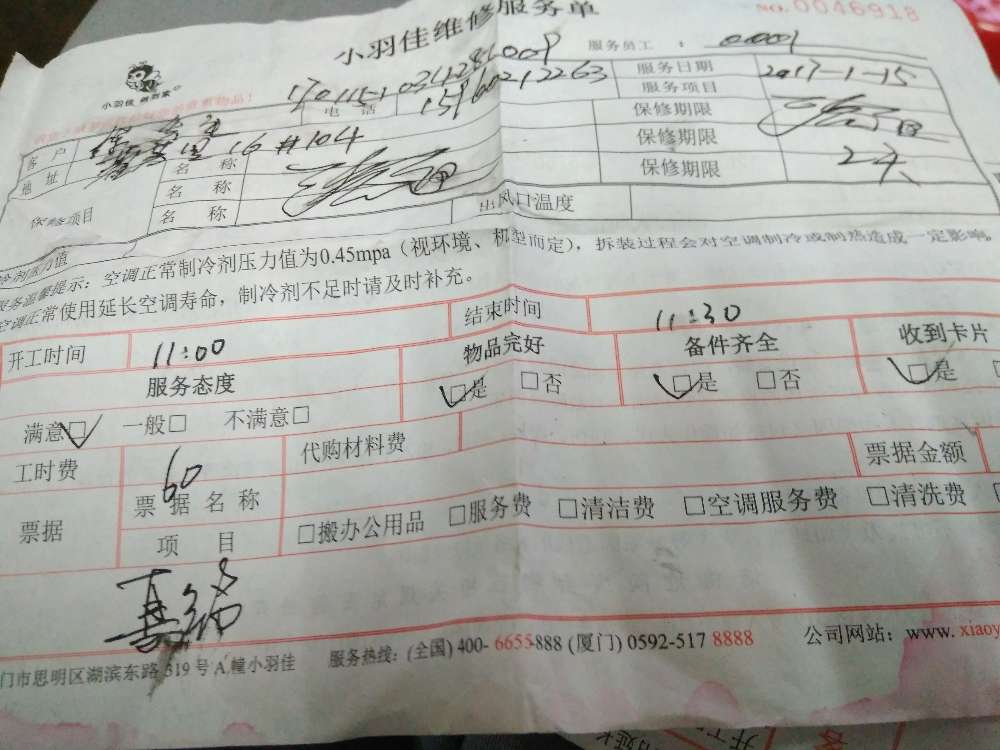 小羽佳维修服务单
NO.0046918
小羽佳 服务员工 :
电话 15960212263 服务日期 2017-1-15
客户 服务项目
地址 16#104 保修期限
保修项目 名称 保修期限
名称 保修期限 2天
名称 出风口温度
冷剂压力值
服务温馨提示：空调正常制冷剂压力值为0.45mpa（视环境、机型而定），拆装过程会对空调制冷或制热造成一定影响。
空调正常使用延长空调寿命，制冷剂不足时请及时补充。
开工时间 11:00 结束时间 11:30
服务态度 物品完好 备件齐全 收到卡片
满意□ 一般□ 不满意□ □是 □否 □是 □否 □是
工时费 60 代购材料费
票据 票据名称 票据金额
项目 □搬办公用品 □服务费 □清洁费 □空调服务费 □清洗费
门市思明区湖滨东路319号A幢小羽佳 服务热线：(全国) 400-6655-888 (厦门) 0592-517 8888 公司网站：www.xiaoy